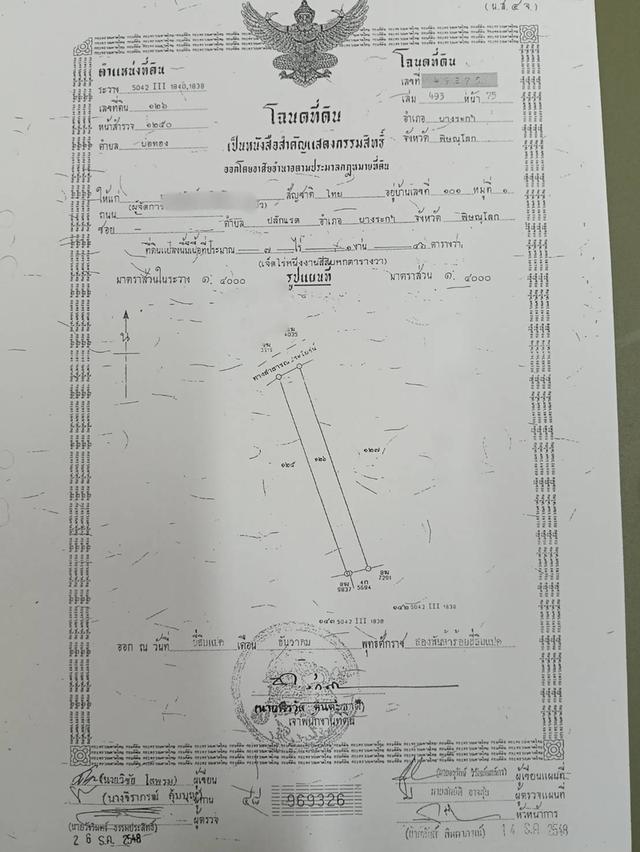 (น.ส.๔ จ)
ตำแหน่งที่ดิน
ระวาง 5042 III 1840,1838
เลขที่ดิน ๑๒๖
หน้าสำรวจ ๑๒๕๐
ตำบล บ่อทอง
โฉนดที่ดิน
เลขที่
เล่ม 493 หน้า 75
อำเภอ บางระกำ
จังหวัด พิษณุโลก
โฉนดที่ดิน
เป็นหนังสือสำคัญแสดงกรรมสิทธิ์
ออกโดยอาศัยอำนาจตามประมวลกฎหมายที่ดิน
ให้แก่ สัญชาติ ไทย อยู่บ้านเลขที่ ๑๐๑ หมู่ที่ ๑
(ผู้จัดการ
ถนน
ซอย ตำบล ปลักแรด อำเภอ บางระกำ จังหวัด พิษณุโลก
ที่ดินแปลงนี้มีเนื้อที่ประมาณ ๗ ไร่ ๑ งาน ๔๖ ตารางวา
(เจ็ดไร่หนึ่งงานสี่สิบหกตารางวา)
มาตราส่วนในระวาง ๑: ๔๐๐๐ รูปแผนที่ มาตราส่วน ๑: ๔๐๐๐
น
4035
ทางสาธารณประโยชน์
๑๒๕
๑๒๖
๑๒๗
9837
5684
7201
๑๔๒ 5042 III 1838
๑๔๓ 5042 III 1838
ออก ณ วันที่ ยี่สิบแปด เดือน ธันวาคม พุทธศักราช สองพันห้าร้อยสี่สิบแปด
เจ้าพนักงานที่ดิน
(นายวิชัย โสพรม) ผู้เขียน
(นางจิราภรณ์ คุ้มบุญ) ผู้ทาน
ผู้ตรวจ
2 6 ธ.ค. 2548
969326
ผู้เขียนแผนที่
ผู้ตรวจแผนที่
หัวหน้าการ
1 4 ธ.ค. 2548